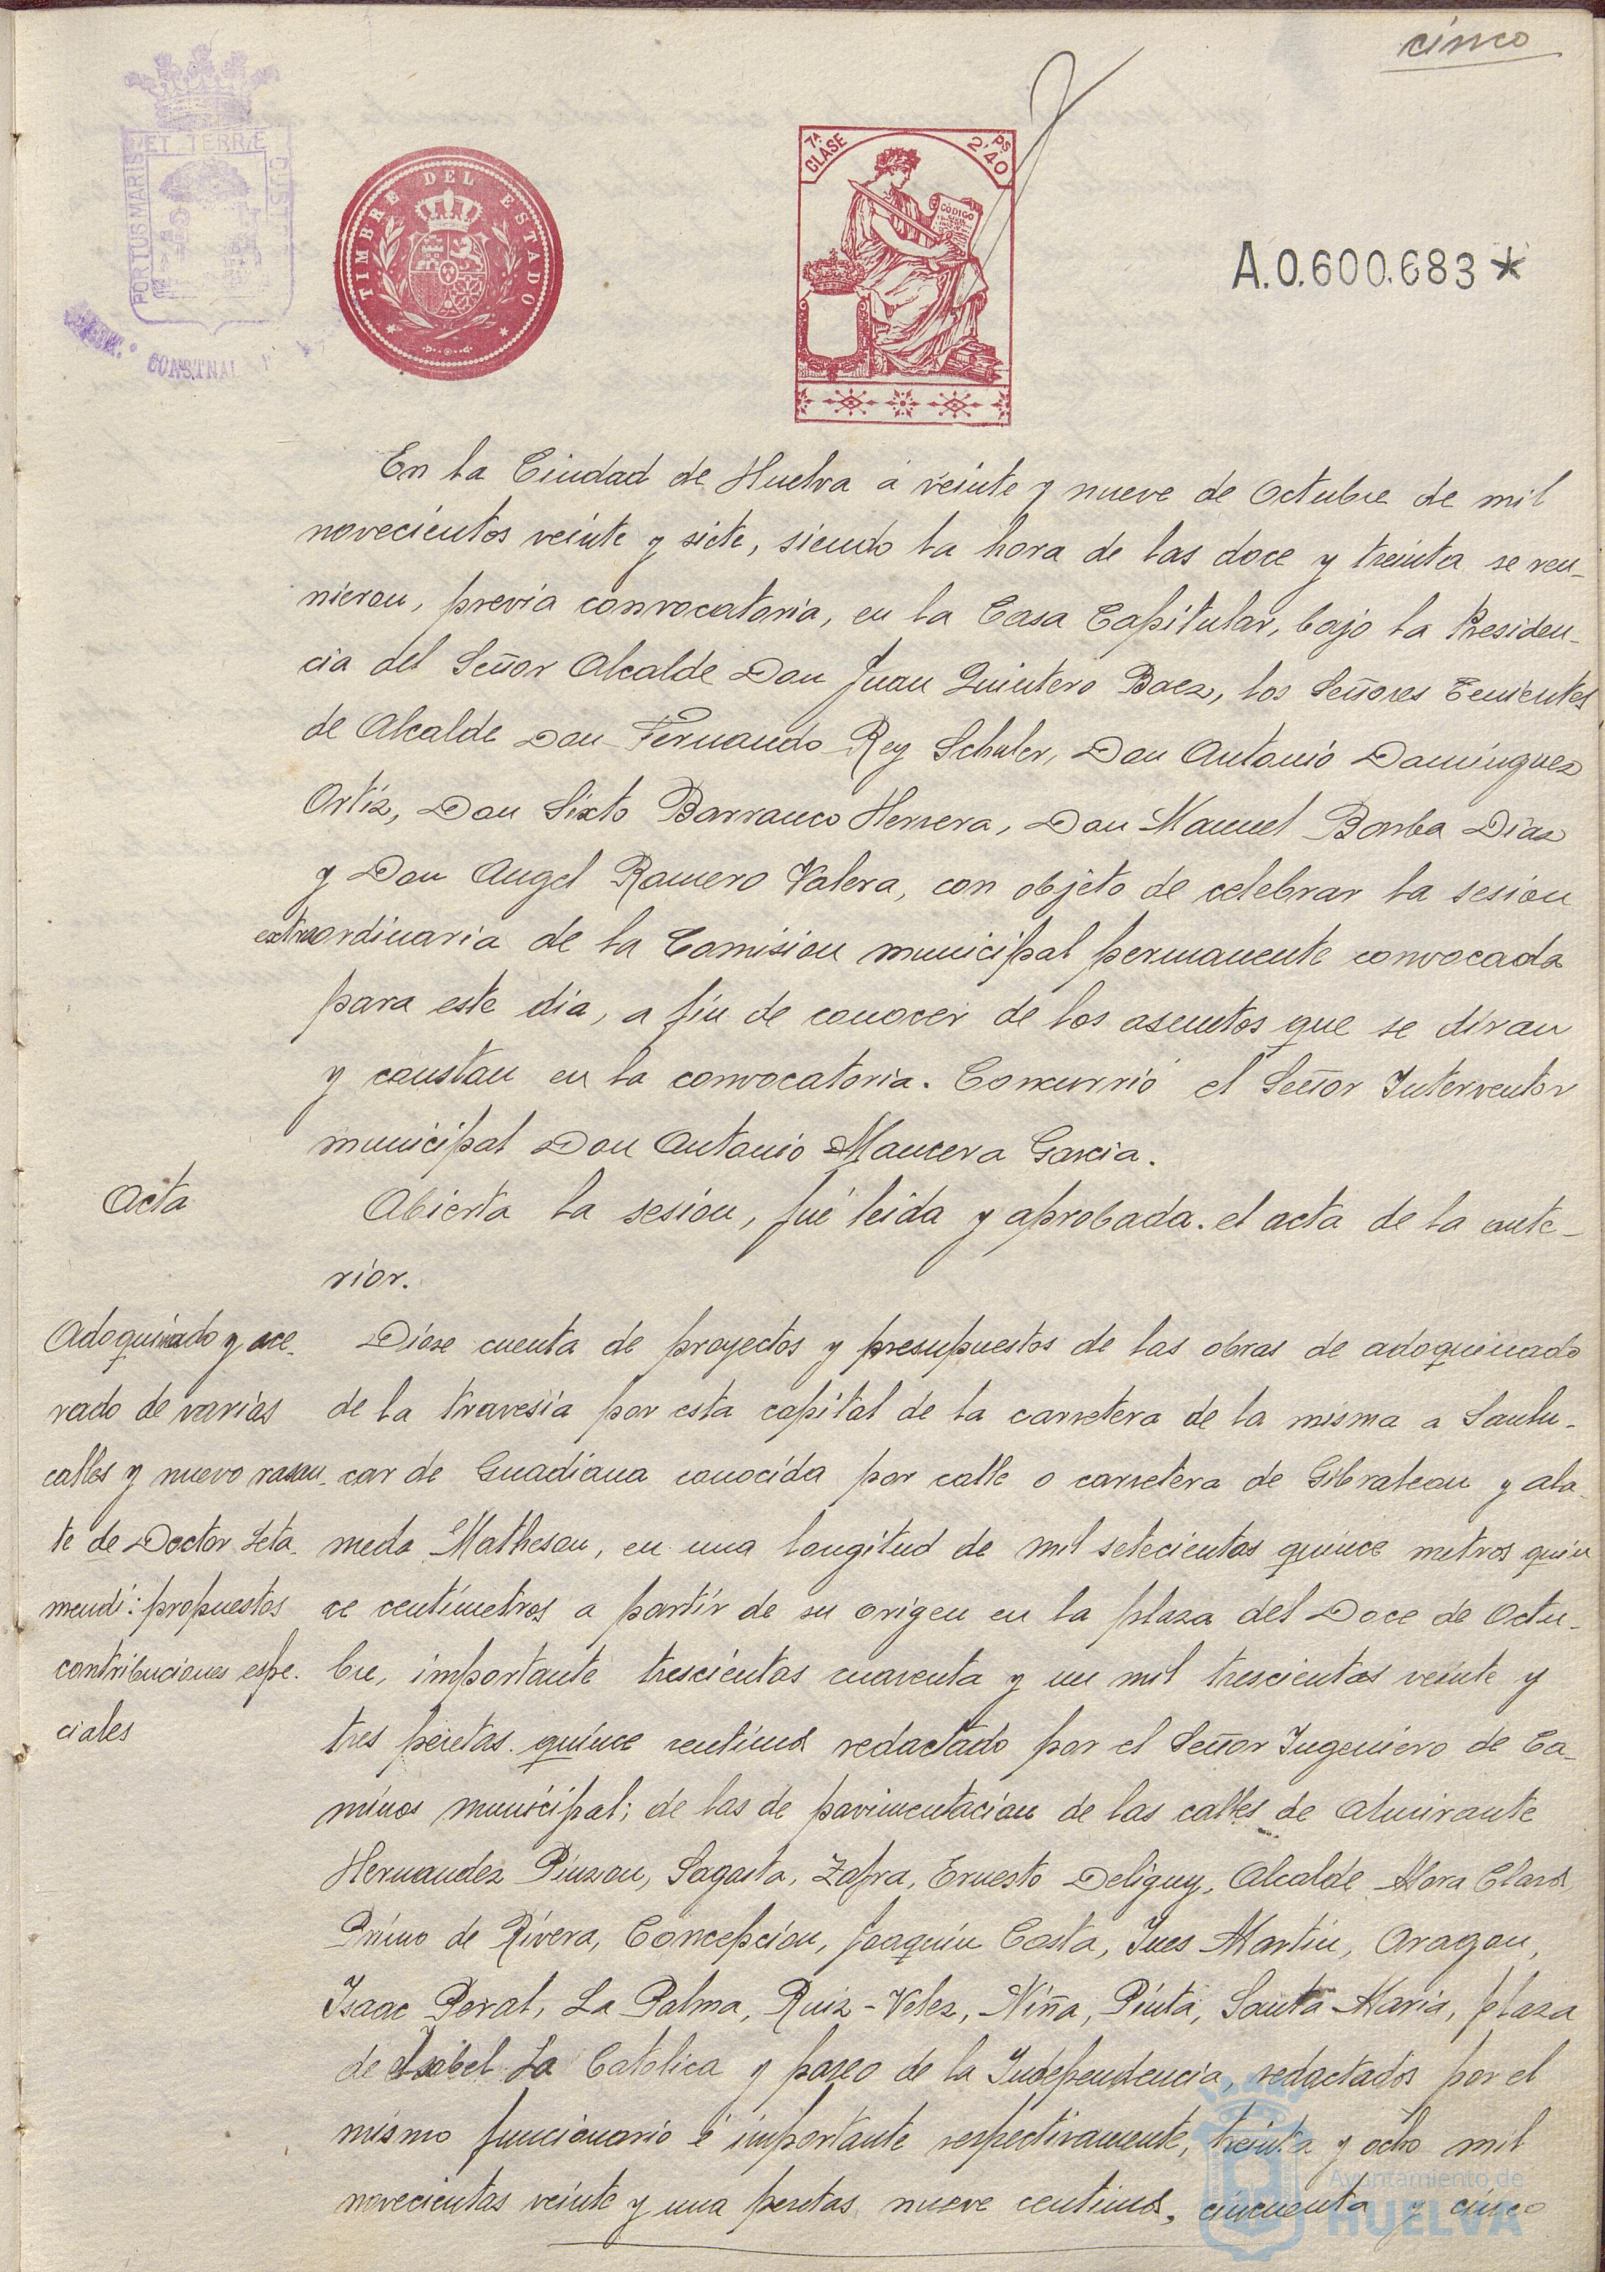 cinco
PORTUS MARIS ET TERRÆ CUST
CONSTNAL
TIMBRE DEL ESTADO
7ª CLASE
2'40 PS
CÓDIGO
A.0.600.683*
En la Ciudad de Huelva a veinte y nueve de Octubre de mil
novecientos veinte y siete, siendo la hora de las doce y treinta se reu-
nieron, previa convocatoria, en la Casa Capitular, bajo la Presiden-
cia del Señor Alcalde Don Juan Quintero Baez, los Señores Tenientes
de Alcalde Don Fernando Rey Schuler, Don Antonio Dominguez
Ortiz, Don Sixto Barranco Herrera, Don Manuel Barba Diaz
y Don Angel Romero Valera, con objeto de celebrar la sesion
extraordinaria de la Comision municipal permanente convocada
para este dia, a fin de conocer de los asuntos que se diran
y constan en la convocatoria. Concurrió el Señor Interventor
municipal Don Antonio Mancera Garcia.
Acta
Abierta la sesion, fué leida y aprobada el acta de la ante-
rior.
Adoquinado y ace-
rado de varias
calles y nuevo rasan-
te de Doctor Leta-
mendi: propuestos
contribuciones espe-
ciales
Diose cuenta de proyectos y presupuestos de las obras de adoquinado
de la travesia por esta capital de la carretera de la misma a Sanlu-
car de Guadiana conocida por calle o carretera de Gibraleon y ala-
meda Matheson, en una longitud de mil setecientos quince metros quin
ce centimetros a partir de su origen en la plaza del Doce de Octu-
bre, importante trescientas cuarenta y un mil trescientas veinte y
tres pesetas quince centimos redactado por el Señor Ingeniero de Ca-
minos municipal; de las de pavimentacion de las calles de Almirante
Hernandez Pinzon, Sagasta, Zafra, Ernesto Deligny, Alcalde Mora Claros
Primo de Rivera, Concepcion, Joaquin Costa, Ines Martin, Aragon,
Isaac Peral, La Palma, Ruiz-Velez, Niña, Pinta, Santa Maria, plaza
de Isabel La Catolica y paseo de la Independencia, redactados por el
mismo funcionario é importante respectivamente, treinta y ocho mil
novecientas veinte y una pesetas nueve centimos, cincuenta y cinco
Ayuntamiento de
HUELVA